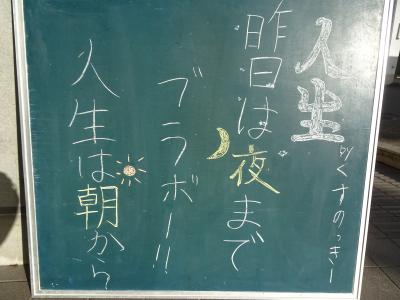 人生
byくすのっきー
昨日は夜まで
ブラボー!!
人生は朝から